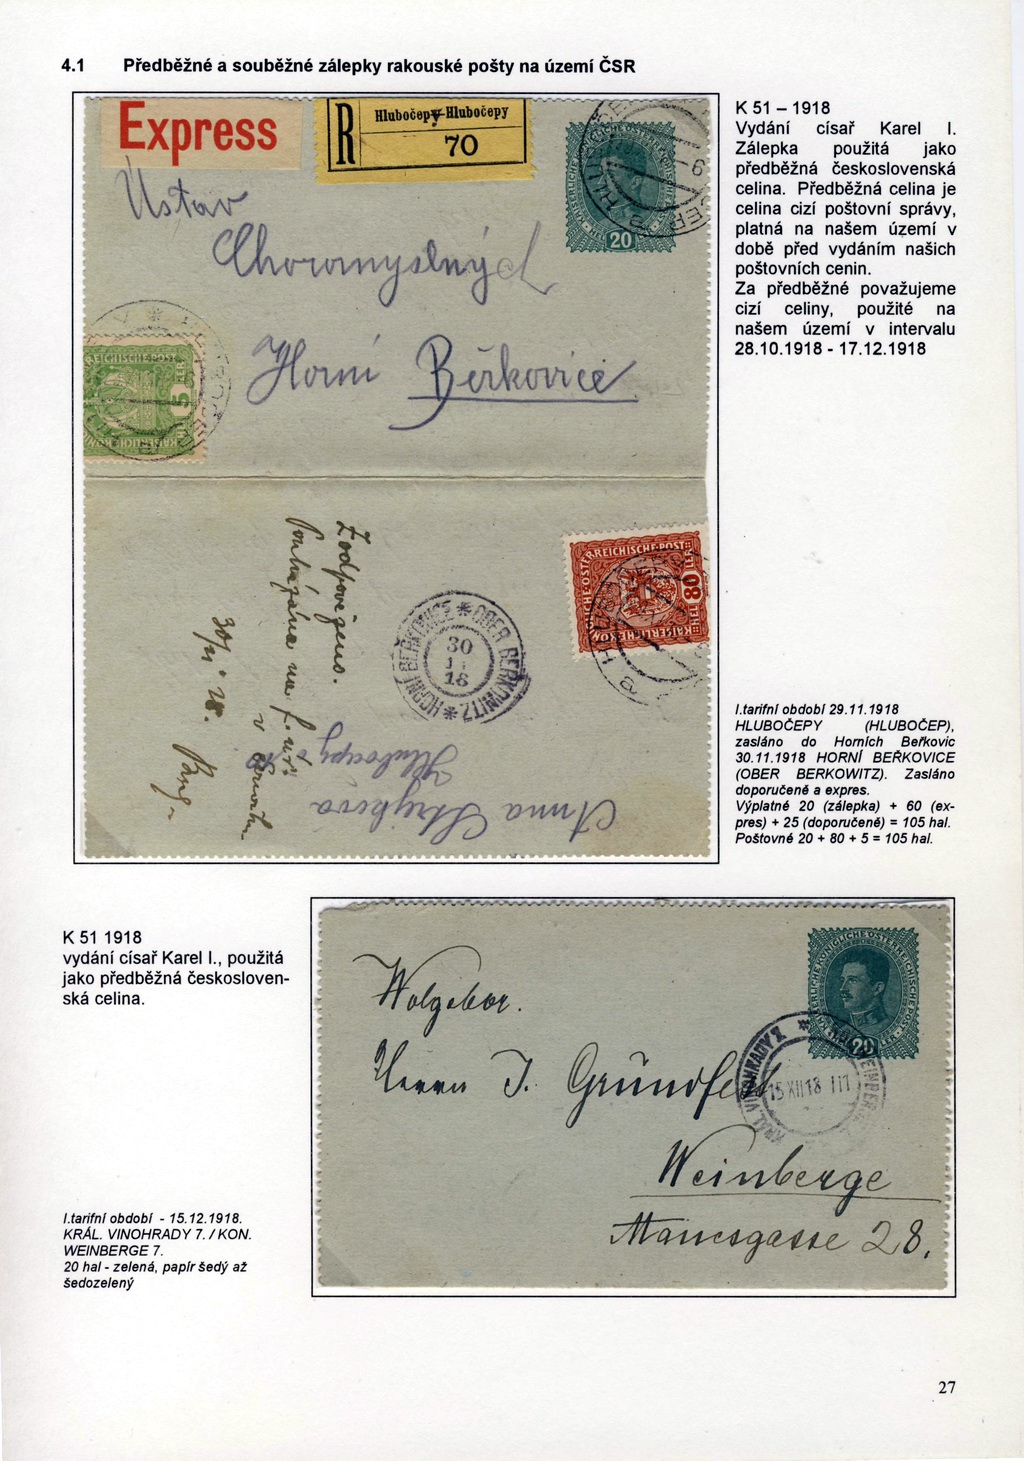 4.1 Předběžné a souběžné zálepky rakouské pošty na území ČSR
Express
R
Hlubočepy-Hlubočepy
70
20
Ústav
Choromyslných
Horní Beřkovice
5
HORNÍ BEŘKOVICE * OBER BERKOWITZ *
30
11
18
80
Zodpovězeno.
30/11 18.
Hlubočepy
Anna
K 51 – 1918
Vydání císař Karel I.
Zálepka použitá jako
předběžná československá
celina. Předběžná celina je
celina cizí poštovní správy,
platná na našem území v
době před vydáním našich
poštovních cenin.
Za předběžné považujeme
cizí celiny, použité na
našem území v intervalu
28.10.1918 - 17.12.1918
I.tarifní období 29.11.1918
HLUBOČEPY (HLUBOČEP),
zasláno do Horních Beřkovic
30.11.1918 HORNÍ BEŘKOVICE
(OBER BERKOWITZ). Zasláno
doporučeně a expres.
Výplatné 20 (zálepka) + 60 (ex-
pres) + 25 (doporučeně) = 105 hal.
Poštovné 20 + 80 + 5 = 105 hal.
K 51 1918
vydání císař Karel I., použitá
jako předběžná českosloven-
ská celina.
I.tarifní období - 15.12.1918.
KRÁL. VINOHRADY 7. / KON.
WEINBERGE 7.
20 hal - zelená, papír šedý až
šedozelený
20
KRÁL. VINOHRADY
15 XII 18
Wolgebor.
Herrn J. Grünfeld
Weinberge
Manesgasse 28.
27